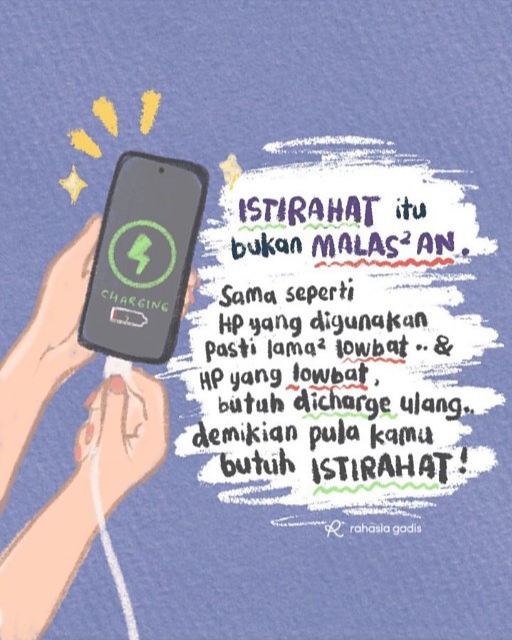 CHARGING
ISTIRAHAT itu
bukan MALAS²AN.
Sama seperti
HP yang digunakan
pasti lama² lowbat .. &
HP yang lowbat,
butuh dicharge ulang..
demikian pula kamu
butuh ISTIRAHAT!
R rahasia gadis